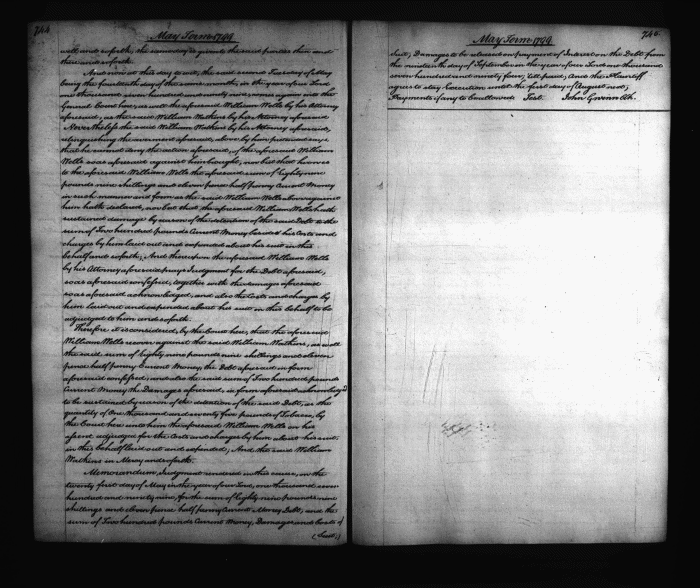 744
May Term 1799
well and so forth, the same day is given to the said parties then and
there and so forth.
And now at this day to wit, the said second Tuesday of May
being the fourteenth day of the same month, in the year of our Lord
one thousand seven hundred and ninety nine comes again into the
General Court here, as well the aforesaid William Wells by his Attorney
aforesaid, as the said William Watkins by his Attorney aforesaid
Nevertheless the said William Watkins by his Attorney aforesaid,
relinquishing the averment aforesaid, above by him pretended says
that he cannot deny the action aforesaid, of the aforesaid William
Wells so as aforesaid against him brought, nor but that he owes
to the aforesaid William Wells the aforesaid sum of eighty nine
pounds nine shillings and eleven pence half penny Current Money
in such manner and form as the said William Wells above against
him hath declared, nor but that the aforesaid William Wells hath
sustained damage by reason of the detention of the said Debt to the
sum of Two hundred pounds Current Money besides his Costs and
charges by him laid out and expended about his suit in this
behalf and so forth; And thereupon the aforesaid William Wells
by his Attorney aforesaid prays Judgment for the Debt aforesaid,
so as aforesaid confessed, together with the damages aforesaid
so as aforesaid acknowledged, and also the Costs and charges by
him laid out and expended about his suit in this behalf to be
adjudged to him and so forth.
Therefore it is considered, by the Court here, that the aforesaid
William Wells recover against the said William Watkins, as well
the said sum of eighty nine pounds nine shillings and eleven
pence half penny Current Money, the Debt aforesaid in form
aforesaid confessed, and also the said sum of Two hundred pounds
Current Money the Damages aforesaid, in form aforesaid acknowledg'd
to be sustained by reason of the detention of the said Debt, as the
quantity of One thousand and seventy five pounds of Tobacco, by
the Court here unto him the aforesaid William Wells on his
assent adjudged for the Costs and charges by him about his suit
in this behalf laid out and expended; And the said William
Watkins in Mercy and so forth.
Memorandum, Judgment rendered in this cause, on the
twenty first day of May in the year of our Lord, one thousand seven
hundred and ninety nine, for the sum of eighty nine pounds nine
shillings and eleven pence half penny Current Money Debt, and the
sum of Two hundred pounds Current Money, Damages and Costs of
(Suit;)
May Term 1799
Suit, Damages to be released on payment of Interest on the Debt from
the nineteenth day of September in the year of our Lord one thousand
seven hundred and ninety four, till paid; And the Plaintiff
agrees to stay Execution until the first day of August next;
Payments if any to be allowed. Test. John Gwinn Clk.